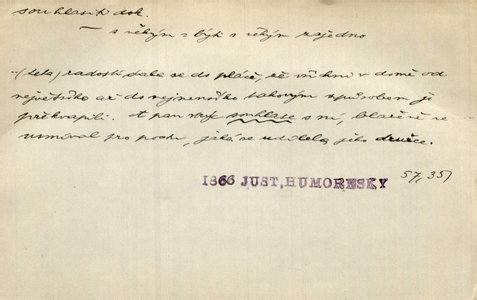 souhlasiti dok.
— s někým = býti s někým zajedno
(teta) radostí dala se do pláče, že všichni v domě od
největšího až do nejmenšího takovým způsobem je
překvapili. A pan souhlase s ní, blaženě se
usmíval pro poctu, jaká se udílela jeho
1866 JUST, HUMORESKY 57, 351